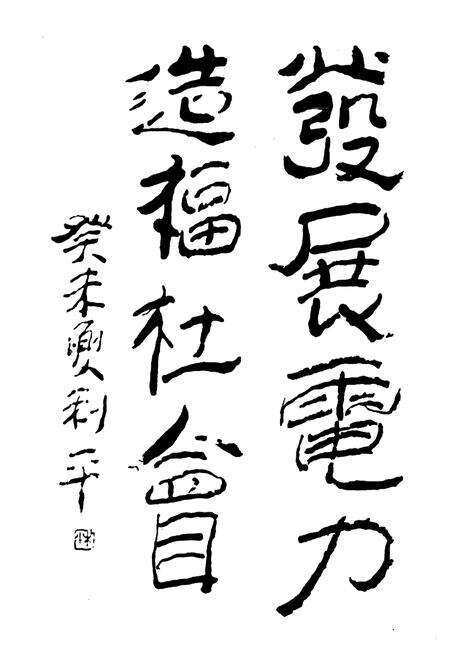 發展電力
造福社會
癸未利平